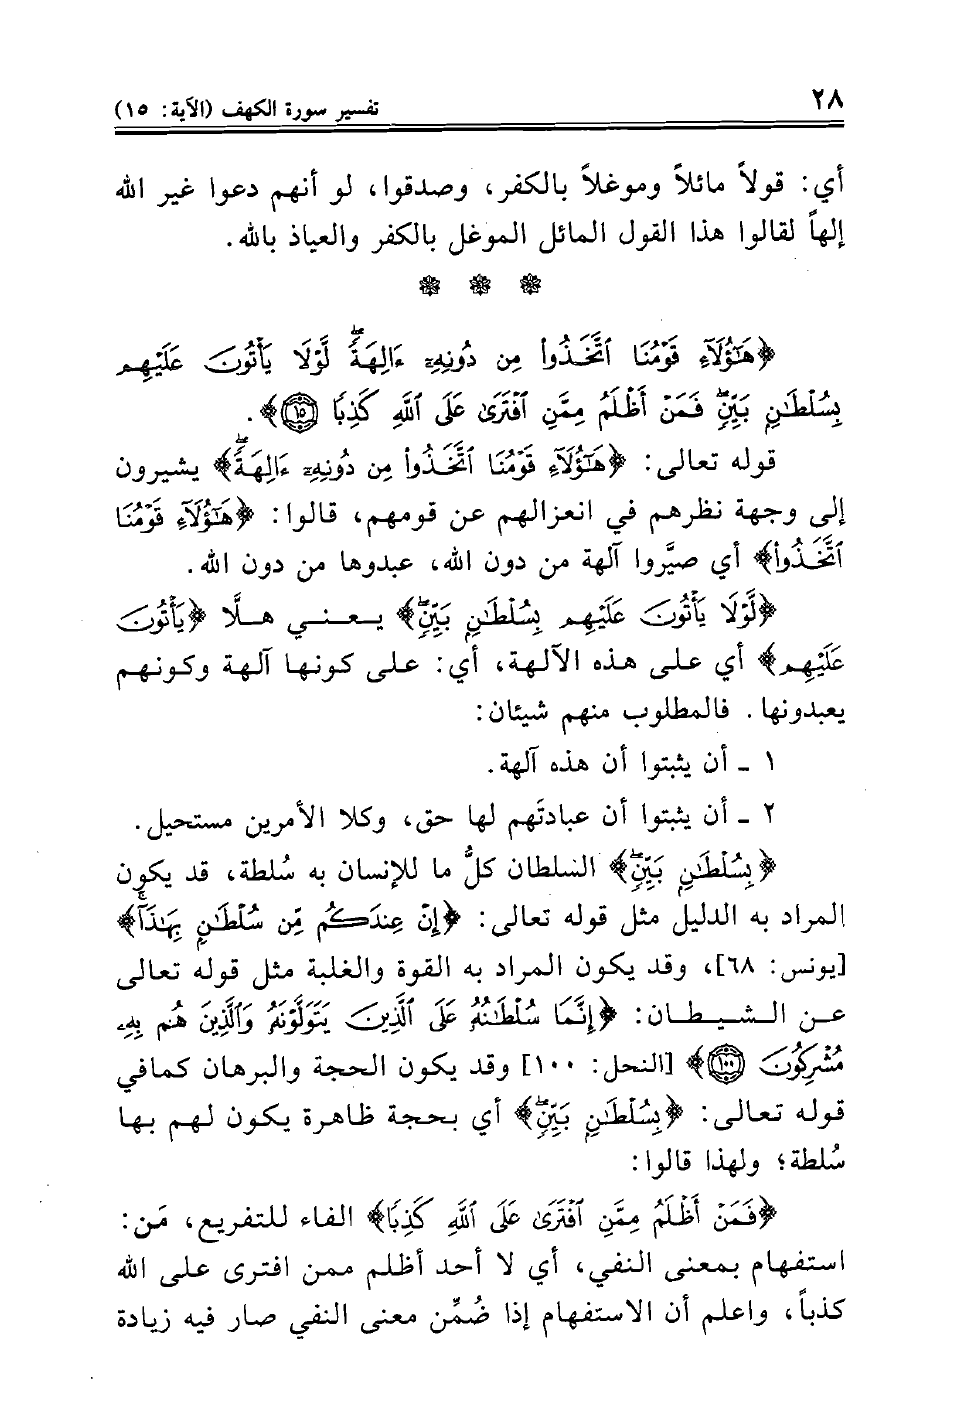 ٢٨
تفسير سورة الكهف (الآية: ١٥)
أي: قولاً مائلاً وموغلاً بالكفر، وصدقوا، لو أنهم دعوا غير الله
إلهاً لقالوا هذا القول المائل الموغل بالكفر والعياذ بالله.
﴿هَٰٓؤُلَآءِ قَوْمُنَا ٱتَّخَذُوا۟ مِن دُونِهِۦٓ ءَالِهَةً ۖ لَّوْلَا يَأْتُونَ عَلَيْهِم
بِسُلْطَٰنٍۭ بَيِّنٍ ۖ فَمَنْ أَظْلَمُ مِمَّنِ ٱفْتَرَىٰ عَلَى ٱللَّهِ كَذِبًا ١٥﴾.
قوله تعالى: ﴿هَٰٓؤُلَآءِ قَوْمُنَا ٱتَّخَذُوا۟ مِن دُونِهِۦٓ ءَالِهَةً ۖ﴾ يشيرون
إلى وجهة نظرهم في انعزالهم عن قومهم، قالوا: ﴿هَٰٓؤُلَآءِ قَوْمُنَا
ٱتَّخَذُوا۟﴾ أي صيَّروا آلهة من دون الله، عبدوها من دون الله.
﴿لَّوْلَا يَأْتُونَ عَلَيْهِم بِسُلْطَٰنٍۭ بَيِّنٍ ۖ﴾ يعني هلَّا ﴿يَأْتُونَ
عَلَيْهِم﴾ أي على هذه الآلهة، أي: على كونها آلهة وكونهم
يعبدونها. فالمطلوب منهم شيئان:
١ ـ أن يثبتوا أن هذه آلهة.
٢ ـ أن يثبتوا أن عبادتَهم لها حق، وكلا الأمرين مستحيل.
﴿بِسُلْطَٰنٍۭ بَيِّنٍ ۖ﴾ السلطان كلُّ ما للإنسان به سُلطة، قد يكون
المراد به الدليل مثل قوله تعالى: ﴿إِنْ عِندَكُم مِّن سُلْطَٰنٍۭ بِهَٰذَآ ۚ﴾
[يونس: ٦٨]، وقد يكون المراد به القوة والغلبة مثل قوله تعالى
عن الشيطان: ﴿إِنَّمَا سُلْطَٰنُهُۥ عَلَى ٱلَّذِينَ يَتَوَلَّوْنَهُۥ وَٱلَّذِينَ هُم بِهِۦ
مُشْرِكُونَ ١٠٠﴾ [النحل: ١٠٠] وقد يكون الحجة والبرهان كمافي
قوله تعالى: ﴿بِسُلْطَٰنٍۭ بَيِّنٍ ۖ﴾ أي بحجة ظاهرة يكون لهم بها
سُلطة؛ ولهذا قالوا:
﴿فَمَنْ أَظْلَمُ مِمَّنِ ٱفْتَرَىٰ عَلَى ٱللَّهِ كَذِبًا﴾ الفاء للتفريع، مَن:
استفهام بمعنى النفي، أي لا أحد أظلم ممن افترى على الله
كذباً، واعلم أن الاستفهام إذا ضُمِّن معنى النفي صار فيه زيادة